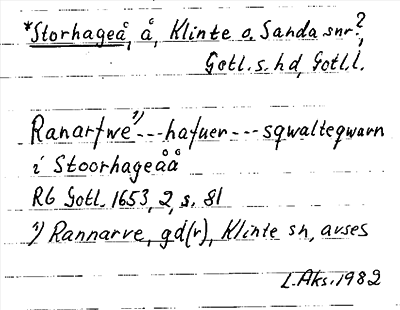 *Storhageå, å, Klinte o. Sanda snr?,
Gotl. s. hd, Gotl. l.
Ranarfwe 1) --- hafuer --- sqwalteqwarn
i Stoorhageåå
RG Gotl. 1653, 2, s. 81
1) Rannarve, gd(r), Klinte sn, avses
L. Aks. 1982